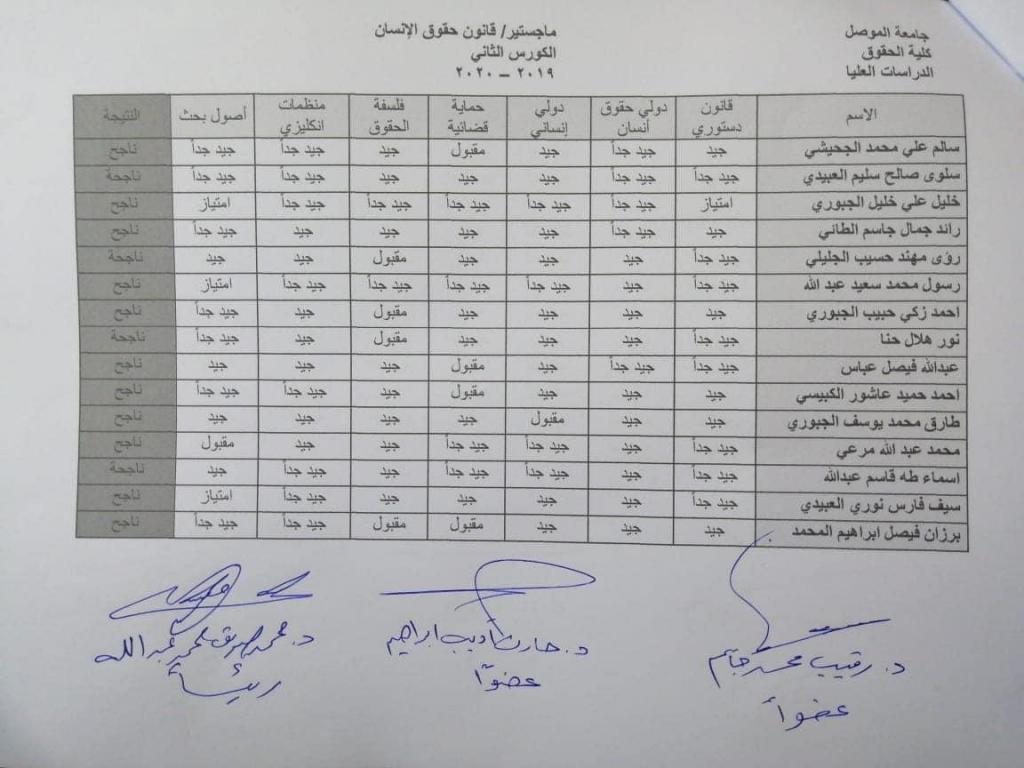 جامعة الموصل
كلية الحقوق
الدراسات العليا
ماجستير/ قانون حقوق الإنسان
الكورس الثاني
٢٠١٩ – ٢٠٢٠
الاسم قانون دستوري دولي حقوق أنسان دولي إنساني حماية قضائية فلسفة الحقوق منظمات انكليزي أصول بحث النتيجة
سالم علي محمد الجحيشي جيد جيد جداً جيد مقبول جيد جيد جداً جيد جداً ناجح
سلوى صالح سليم العبيدي جيد جداً جيد جداً جيد جيد جيد جيد جداً جيد جداً ناجحة
خليل علي خليل الجبوري امتياز جيد جداً جيد جداً جيد جداً جيد جداً جيد جداً امتياز ناجح
رائد جمال جاسم الطائي جيد جيد جداً جيد جيد جيد جيد جيد جداً ناجح
رؤى مهند حسيب الجليلي جيد جداً جيد جيد جيد مقبول جيد جيد ناجحة
رسول محمد سعيد عبد الله جيد جداً جيد جيد جداً جيد جداً جيد جداً جيد جداً امتياز ناجح
احمد زكي حبيب الجبوري جيد جيد جيد جيد مقبول جيد جيد جداً ناجح
نور هلال حنا جيد جداً جيد جيد جيد مقبول جيد جيد جداً ناجحة
عبدالله فيصل عباس جيد جداً جيد جداً جيد مقبول جيد جيد جيد ناجح
احمد حميد عاشور الكبيسي جيد جيد جيد مقبول جيد جيد جداً جيد جداً ناجح
طارق محمد يوسف الجبوري جيد جيد مقبول جيد جيد جيد جيد ناجح
محمد عبد الله مرعي جيد جيد جيد جداً جيد جداً جيد جيد مقبول ناجح
اسماء طه قاسم عبدالله جيد جداً جيد جيد جداً جيد جداً جيد جيد جداً جيد ناجحة
سيف فارس نوري العبيدي جيد جداً جيد جيد جيد جيد جيد جداً امتياز ناجح
برزان فيصل ابراهيم المحمد جيد جيد جيد مقبول مقبول جيد جداً جيد جداً ناجح
د. رقيب محمد جاسم
عضواً
د. حارث اديب ابراهيم
عضواً
د. محمد صديق محمد عبدالله
رئيساً